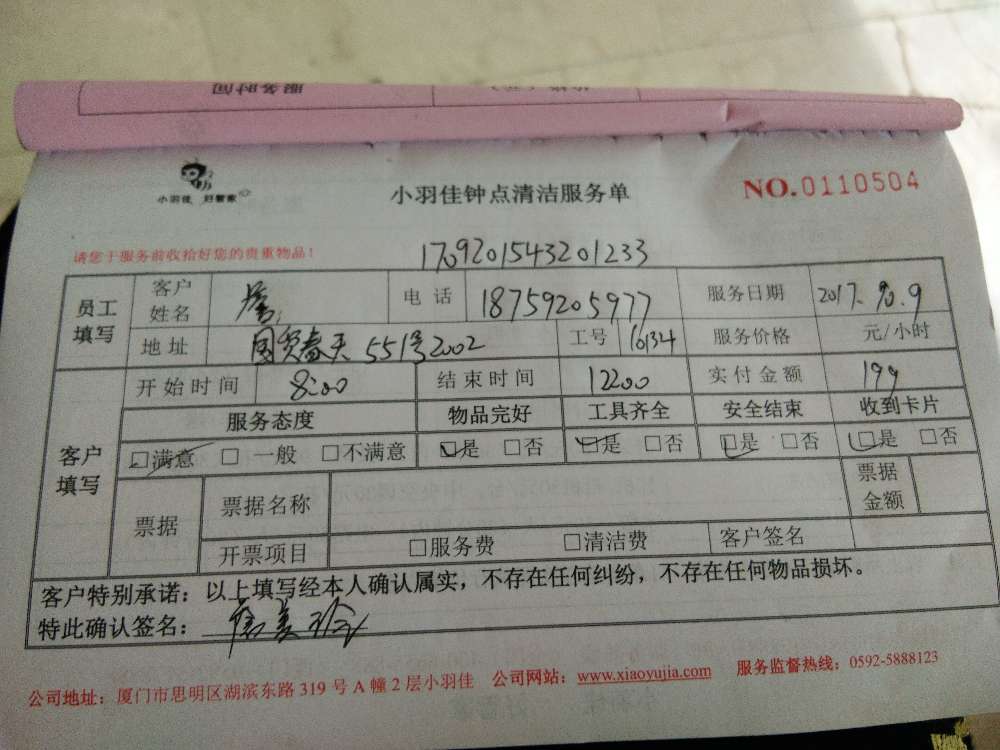 服务时间
小羽佳 好管家
小羽佳钟点清洁服务单
NO.0110504
请您于服务前收拾好您的贵重物品！
1709201543201233
员工填写 客户姓名 詹 电话 18759205977 服务日期 2017. 9
地址 国贸春天551号2002 工号 16134 服务价格 元/小时
客户填写 开始时间 8:00 结束时间 12:00 实付金额 199
服务态度 物品完好 工具齐全 安全结束 收到卡片
☑满意 □一般 □不满意 ☑是 □否 ☑是 □否 ☑是 □否 ☑是 □否
票据 票据名称 票据金额
开票项目 □服务费 □清洁费 客户签名
客户特别承诺：以上填写经本人确认属实，不存在任何纠纷，不存在任何物品损坏。
特此确认签名：詹美
公司地址：厦门市思明区湖滨东路319号A幢2层小羽佳 公司网站：www.xiaoyujia.com 服务监督热线：0592-5888123